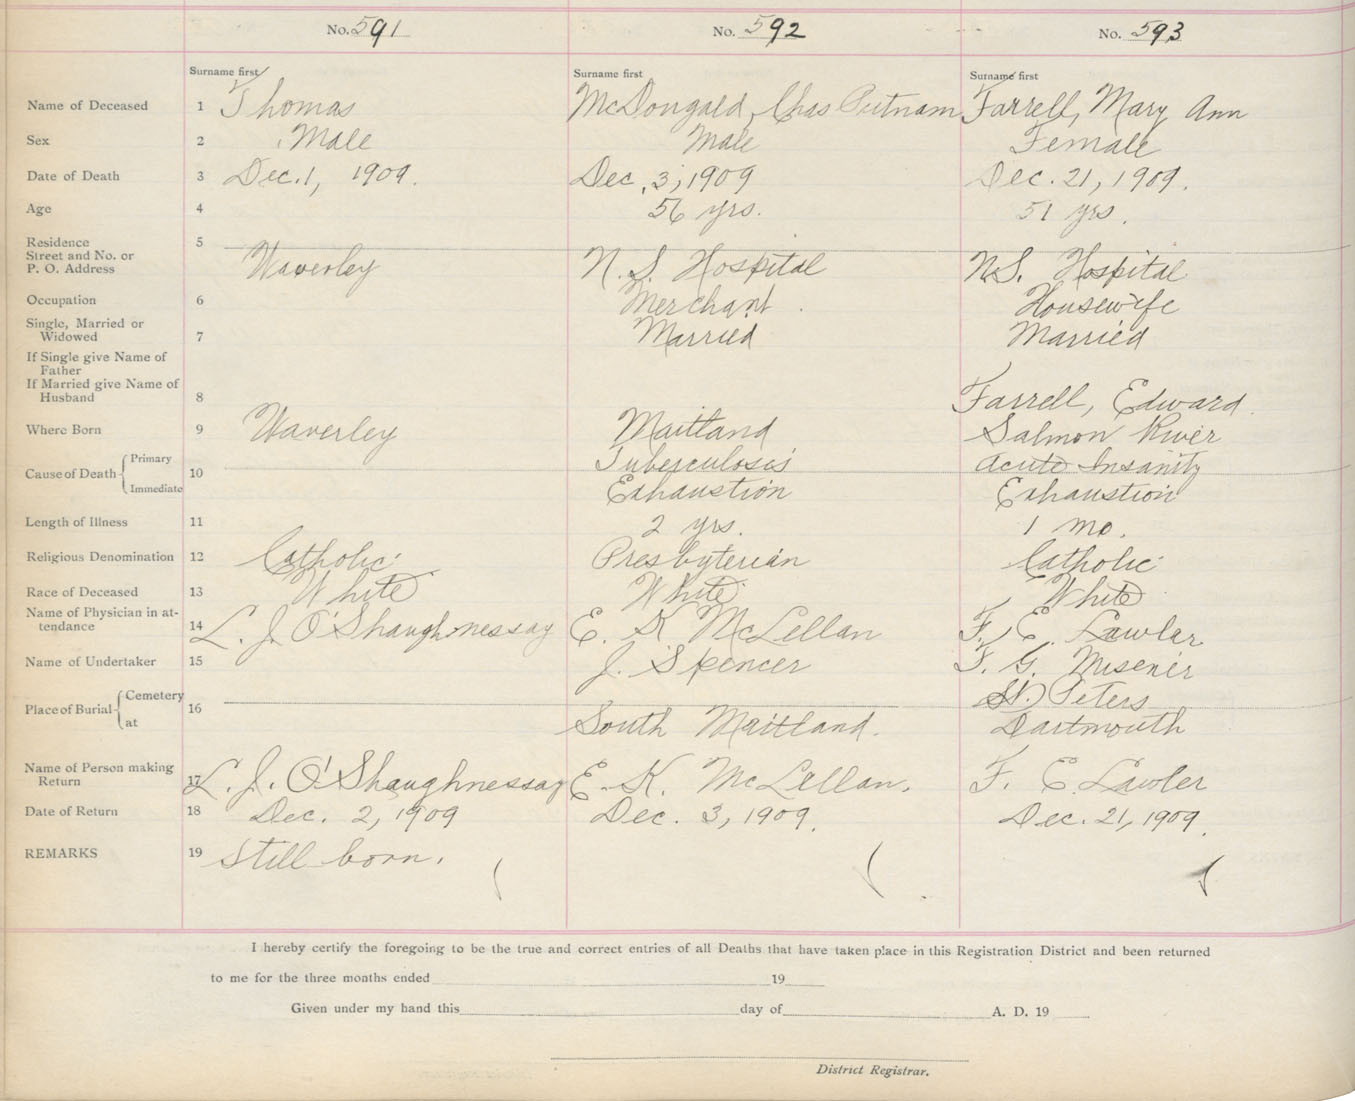 No. 591 No. 592 No. 593
Surname first Surname first Surname first
Name of Deceased 1 Thomas McDongald, Chas Putnam Farrell, Mary Ann
Sex 2 Male Male Female
Date of Death 3 Dec. 1, 1909. Dec. 3, 1909 Dec. 21, 1909.
Age 4 56 yrs. 51 yrs.
Residence 5
Street and No. or
P. O. Address Waverley N. S. Hospital N.S. Hospital
Occupation 6 Merchant Housewife
Single, Married or
Widowed 7 Married Married
If Single give Name of
Father
If Married give Name of
Husband 8 Farrell, Edward
Where Born 9 Waverley Maitland Salmon River
Cause of Death 10 Primary Tuberculosis Acute Insanity
Immediate Exhaustion Exhaustion
Length of Illness 11 2 yrs. 1 mo.
Religious Denomination 12 Catholic Presbyterian Catholic
Race of Deceased 13 White White White
Name of Physician in at-
tendance 14 L. J. O'Shaughnessay E. K McLellan F. E. Lawlor
Name of Undertaker 15 J. Spencer F. G. Misener
Place of Burial 16 Cemetery St. Peters
at South Maitland. Dartmouth
Name of Person making
Return 17 L. J. O'Shaughnessay E. K. McLellan. F. E. Lawler
Date of Return 18 Dec. 2, 1909 Dec. 3, 1909. Dec. 21, 1909.
REMARKS 19 Still born.
I hereby certify the foregoing to be the true and correct entries of all Deaths that have taken place in this Registration District and been returned
to me for the three months ended 19
Given under my hand this day of A. D. 19
District Registrar.